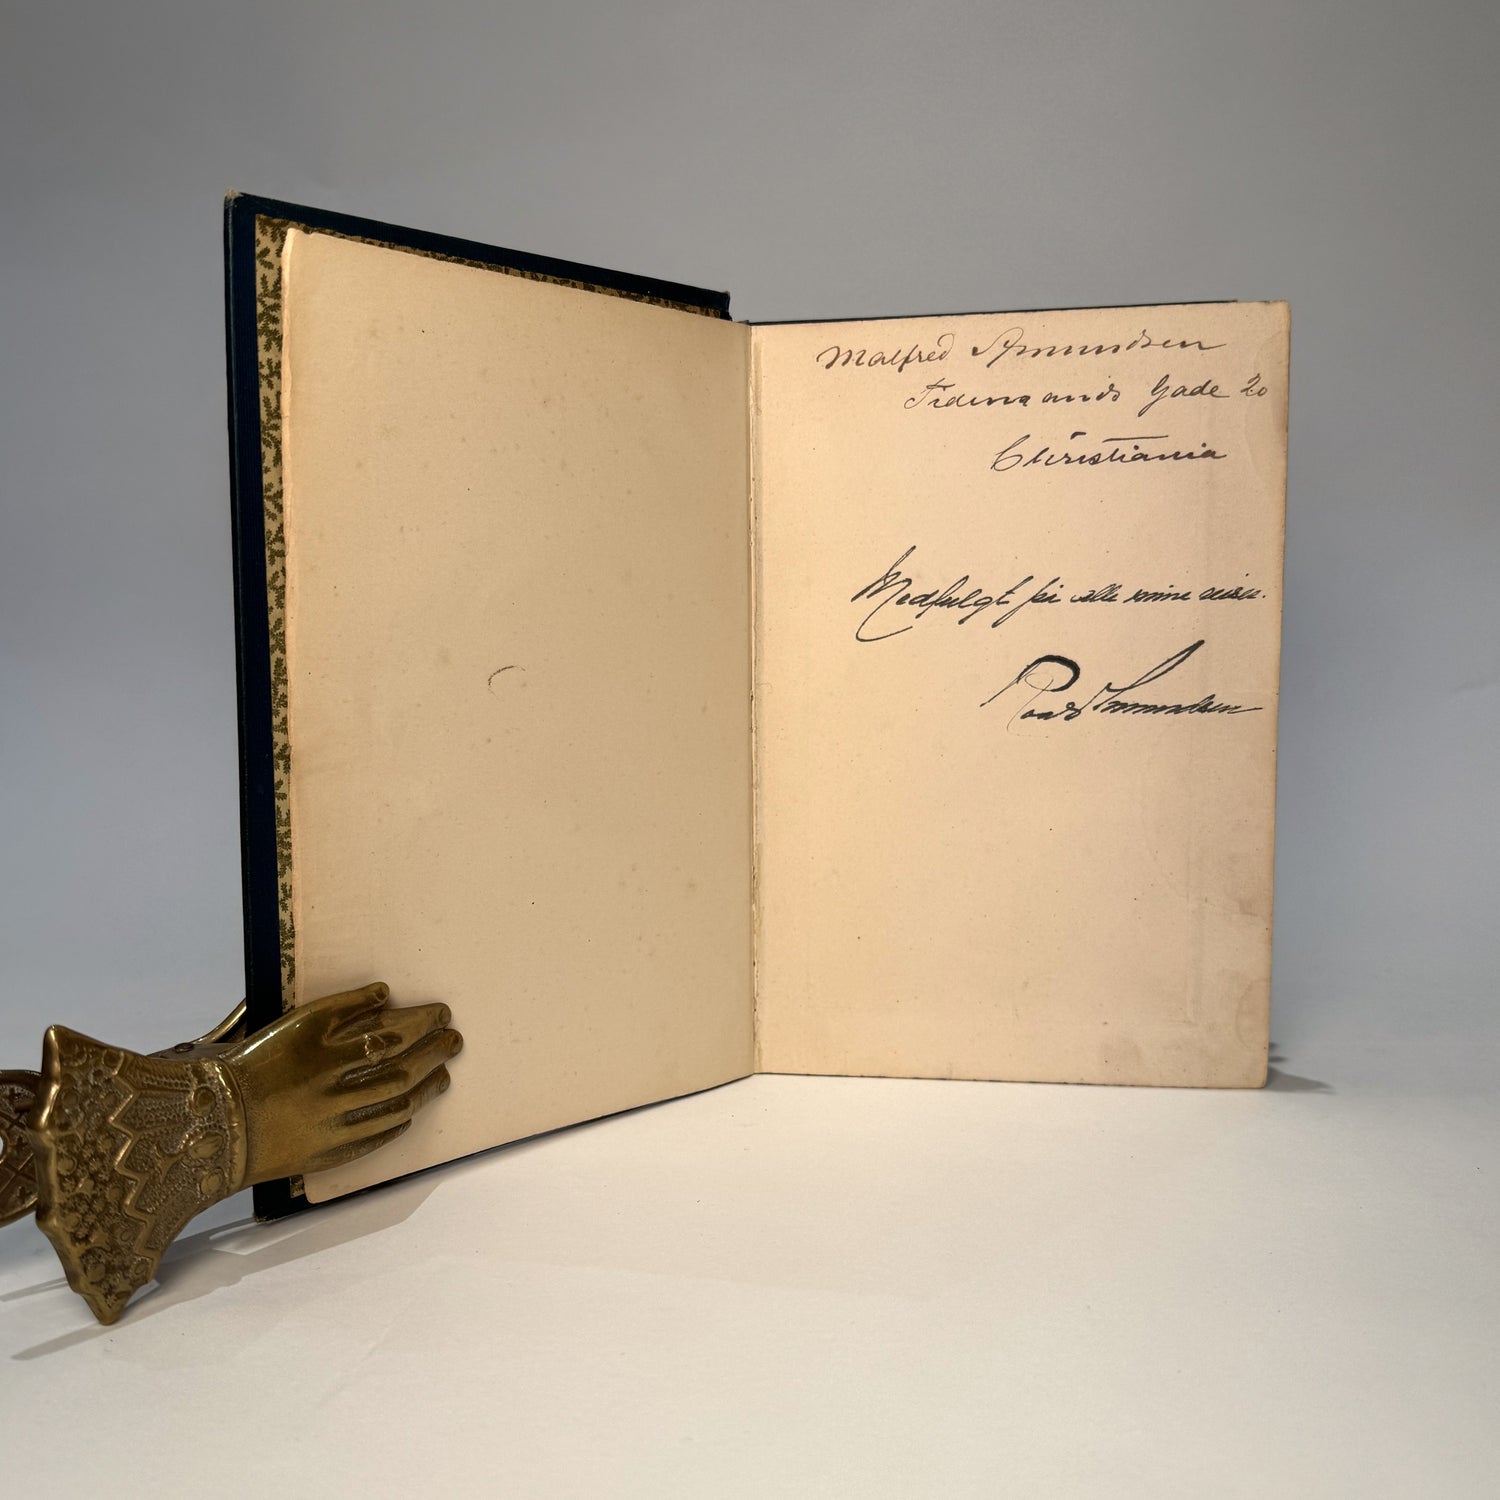 Malfred Amundsen
Fredinaands Gade 20
Christiania
Medfulgt på alle mine reiser.
Roald Amundsen